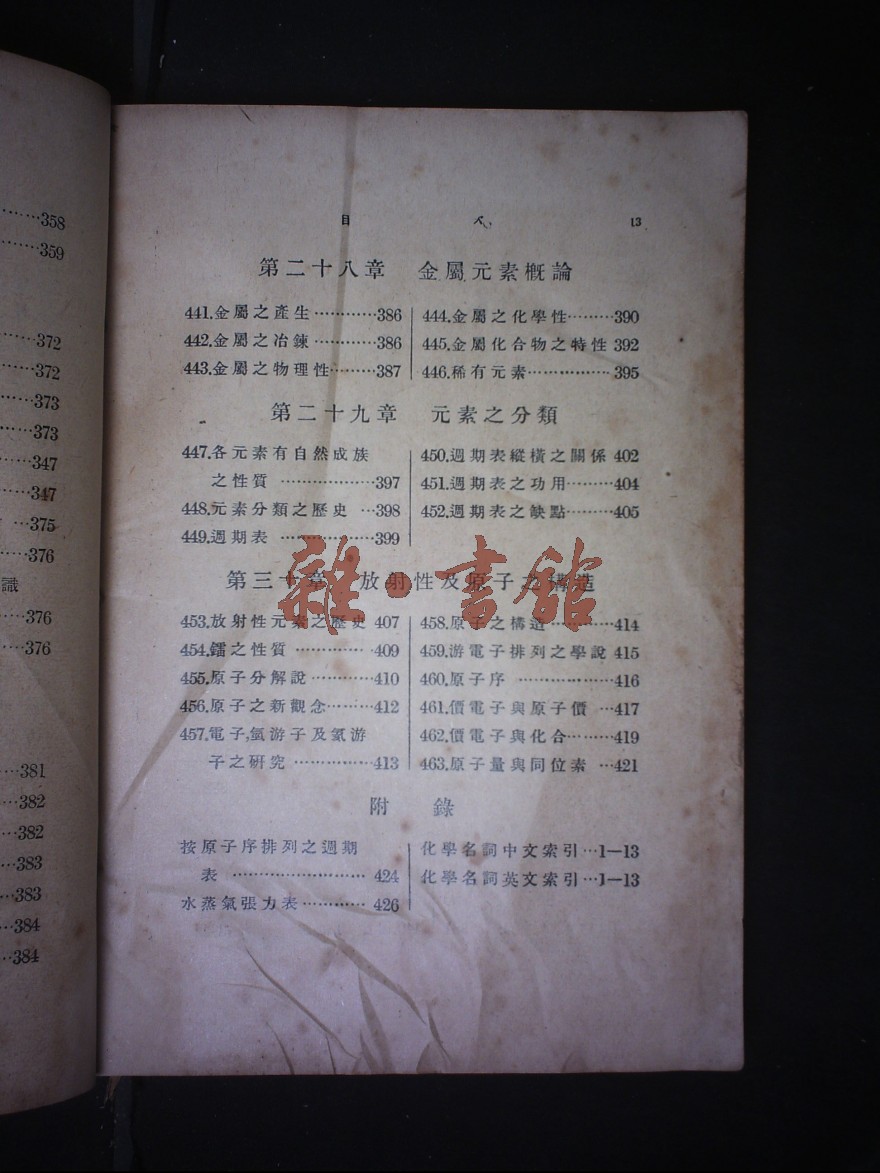 358
359
372
372
373
373
347
347
375
376
識
376
376
381
382
382
383
383
384
384
目 次 13
第二十八章 金屬元素概論
441.金屬之產生…………386
442.金屬之冶鍊…………386
443.金屬之物理性………387
444.金屬之化學性………390
445.金屬化合物之特性 392
446.稀有元素……………395
第二十九章 元素之分類
447.各元素有自然成族
之性質 ………………397
448.元素分類之歷史 …398
449.週期表 ………………399
450.週期表縱橫之關係 402
451.週期表之功用………404
452.週期表之缺點………405
第三十章 放射性及原子之構造
453.放射性元素之歷史 407
454.鐳之性質 ………… 409
455.原子分解說…………410
456.原子之新觀念………412
457.電子,氫游子及氦游
子之研究 ……………413
458.原子之構造…………414
459.游電子排列之學說 415
460.原子序 ………………416
461.價電子與原子價 …417
462.價電子與化合………419
463.原子量與同位素 …421
附 錄
按原子序排列之週期
表 …………………… 424
水蒸氣張力表………… 426
化學名詞中文索引…1—13
化學名詞英文索引…1—13
雜·書館